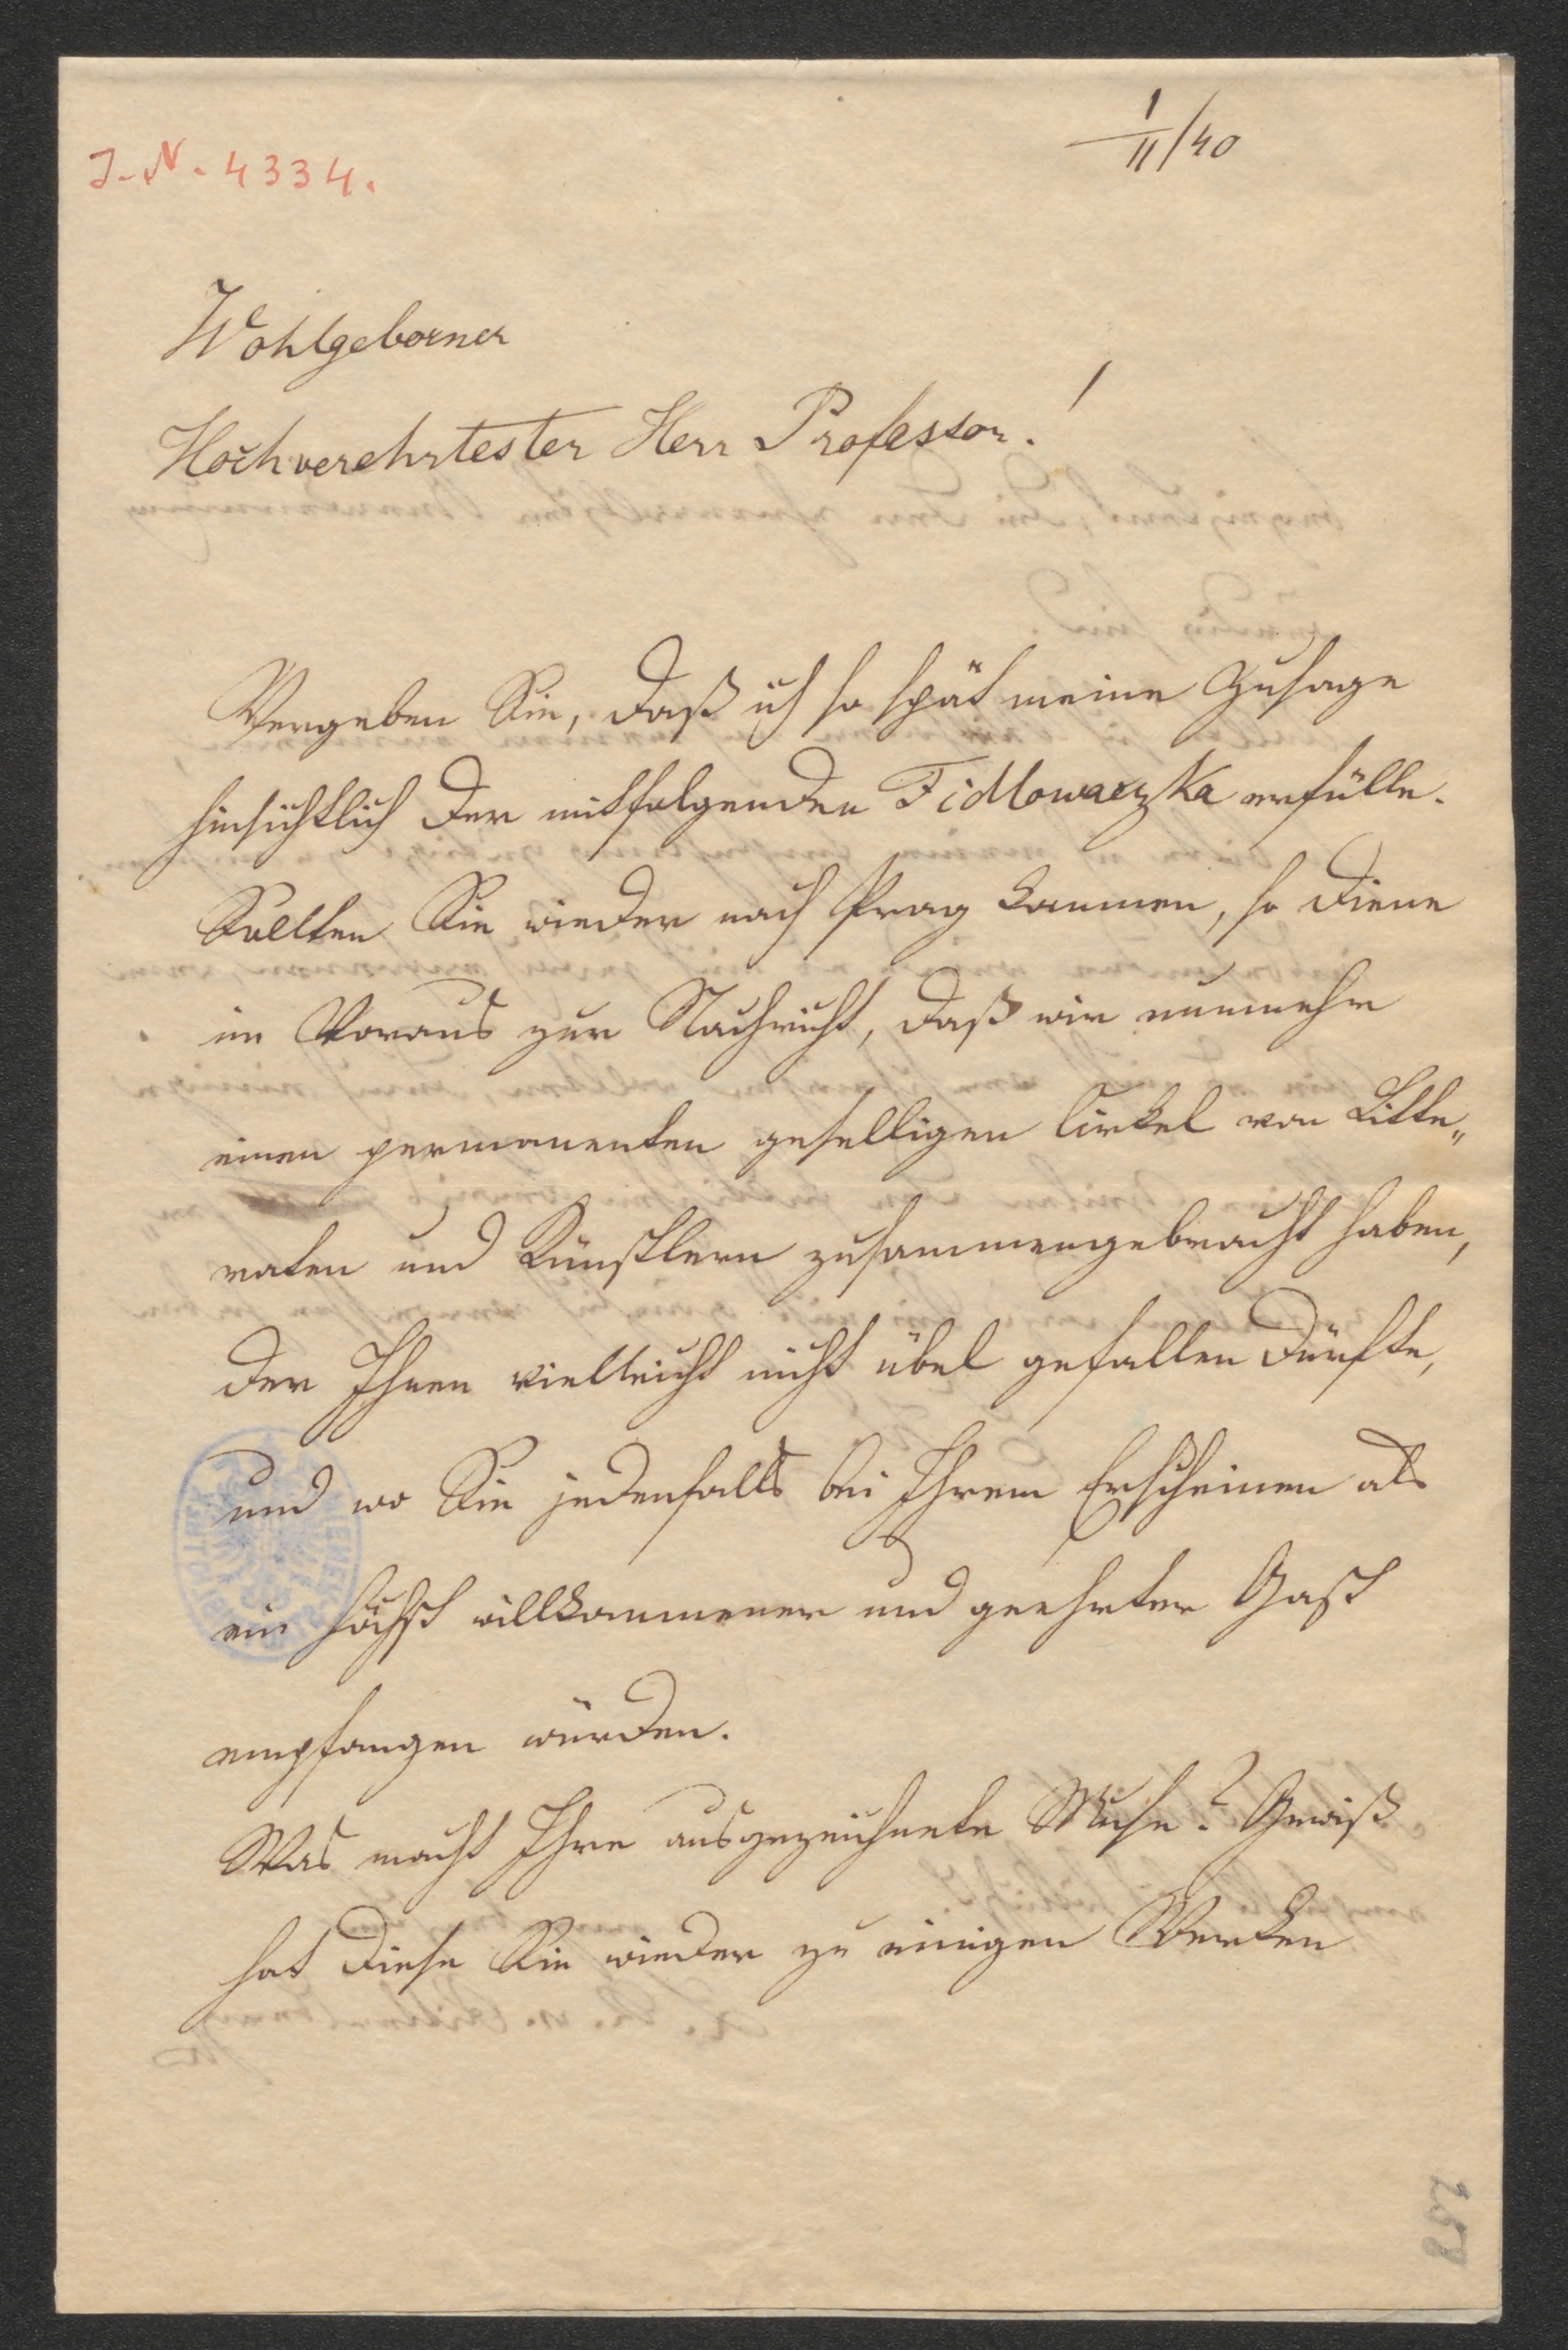 J.-N. 4334.
1/II/40
Wohlgeborner
Hochverehrtester Herr Professor!
Vergeben Sie, daß ich so spät meine Zusage
hinsichtlich der mitfolgenden Fidlowaczka erfülle.
Sollten Sie wieder nach Prag kommen, so diene
im Voraus zur Nachricht, daß wir nunmehr
einen permanenten geselligen Cirkel von Litte„
raten und Künstlern zusammengebracht haben,
der Ihnen vielleicht nicht übel gefallen dürfte,
und wo Sie jedenfalls bei Ihrem Erscheinen als
ein höchst willkommener und geehrter Gast
empfangen würden.
Was macht Ihre ausgezeichnete Muse? Gewiß
hat diese Sie wieder zu einigen Werken
258